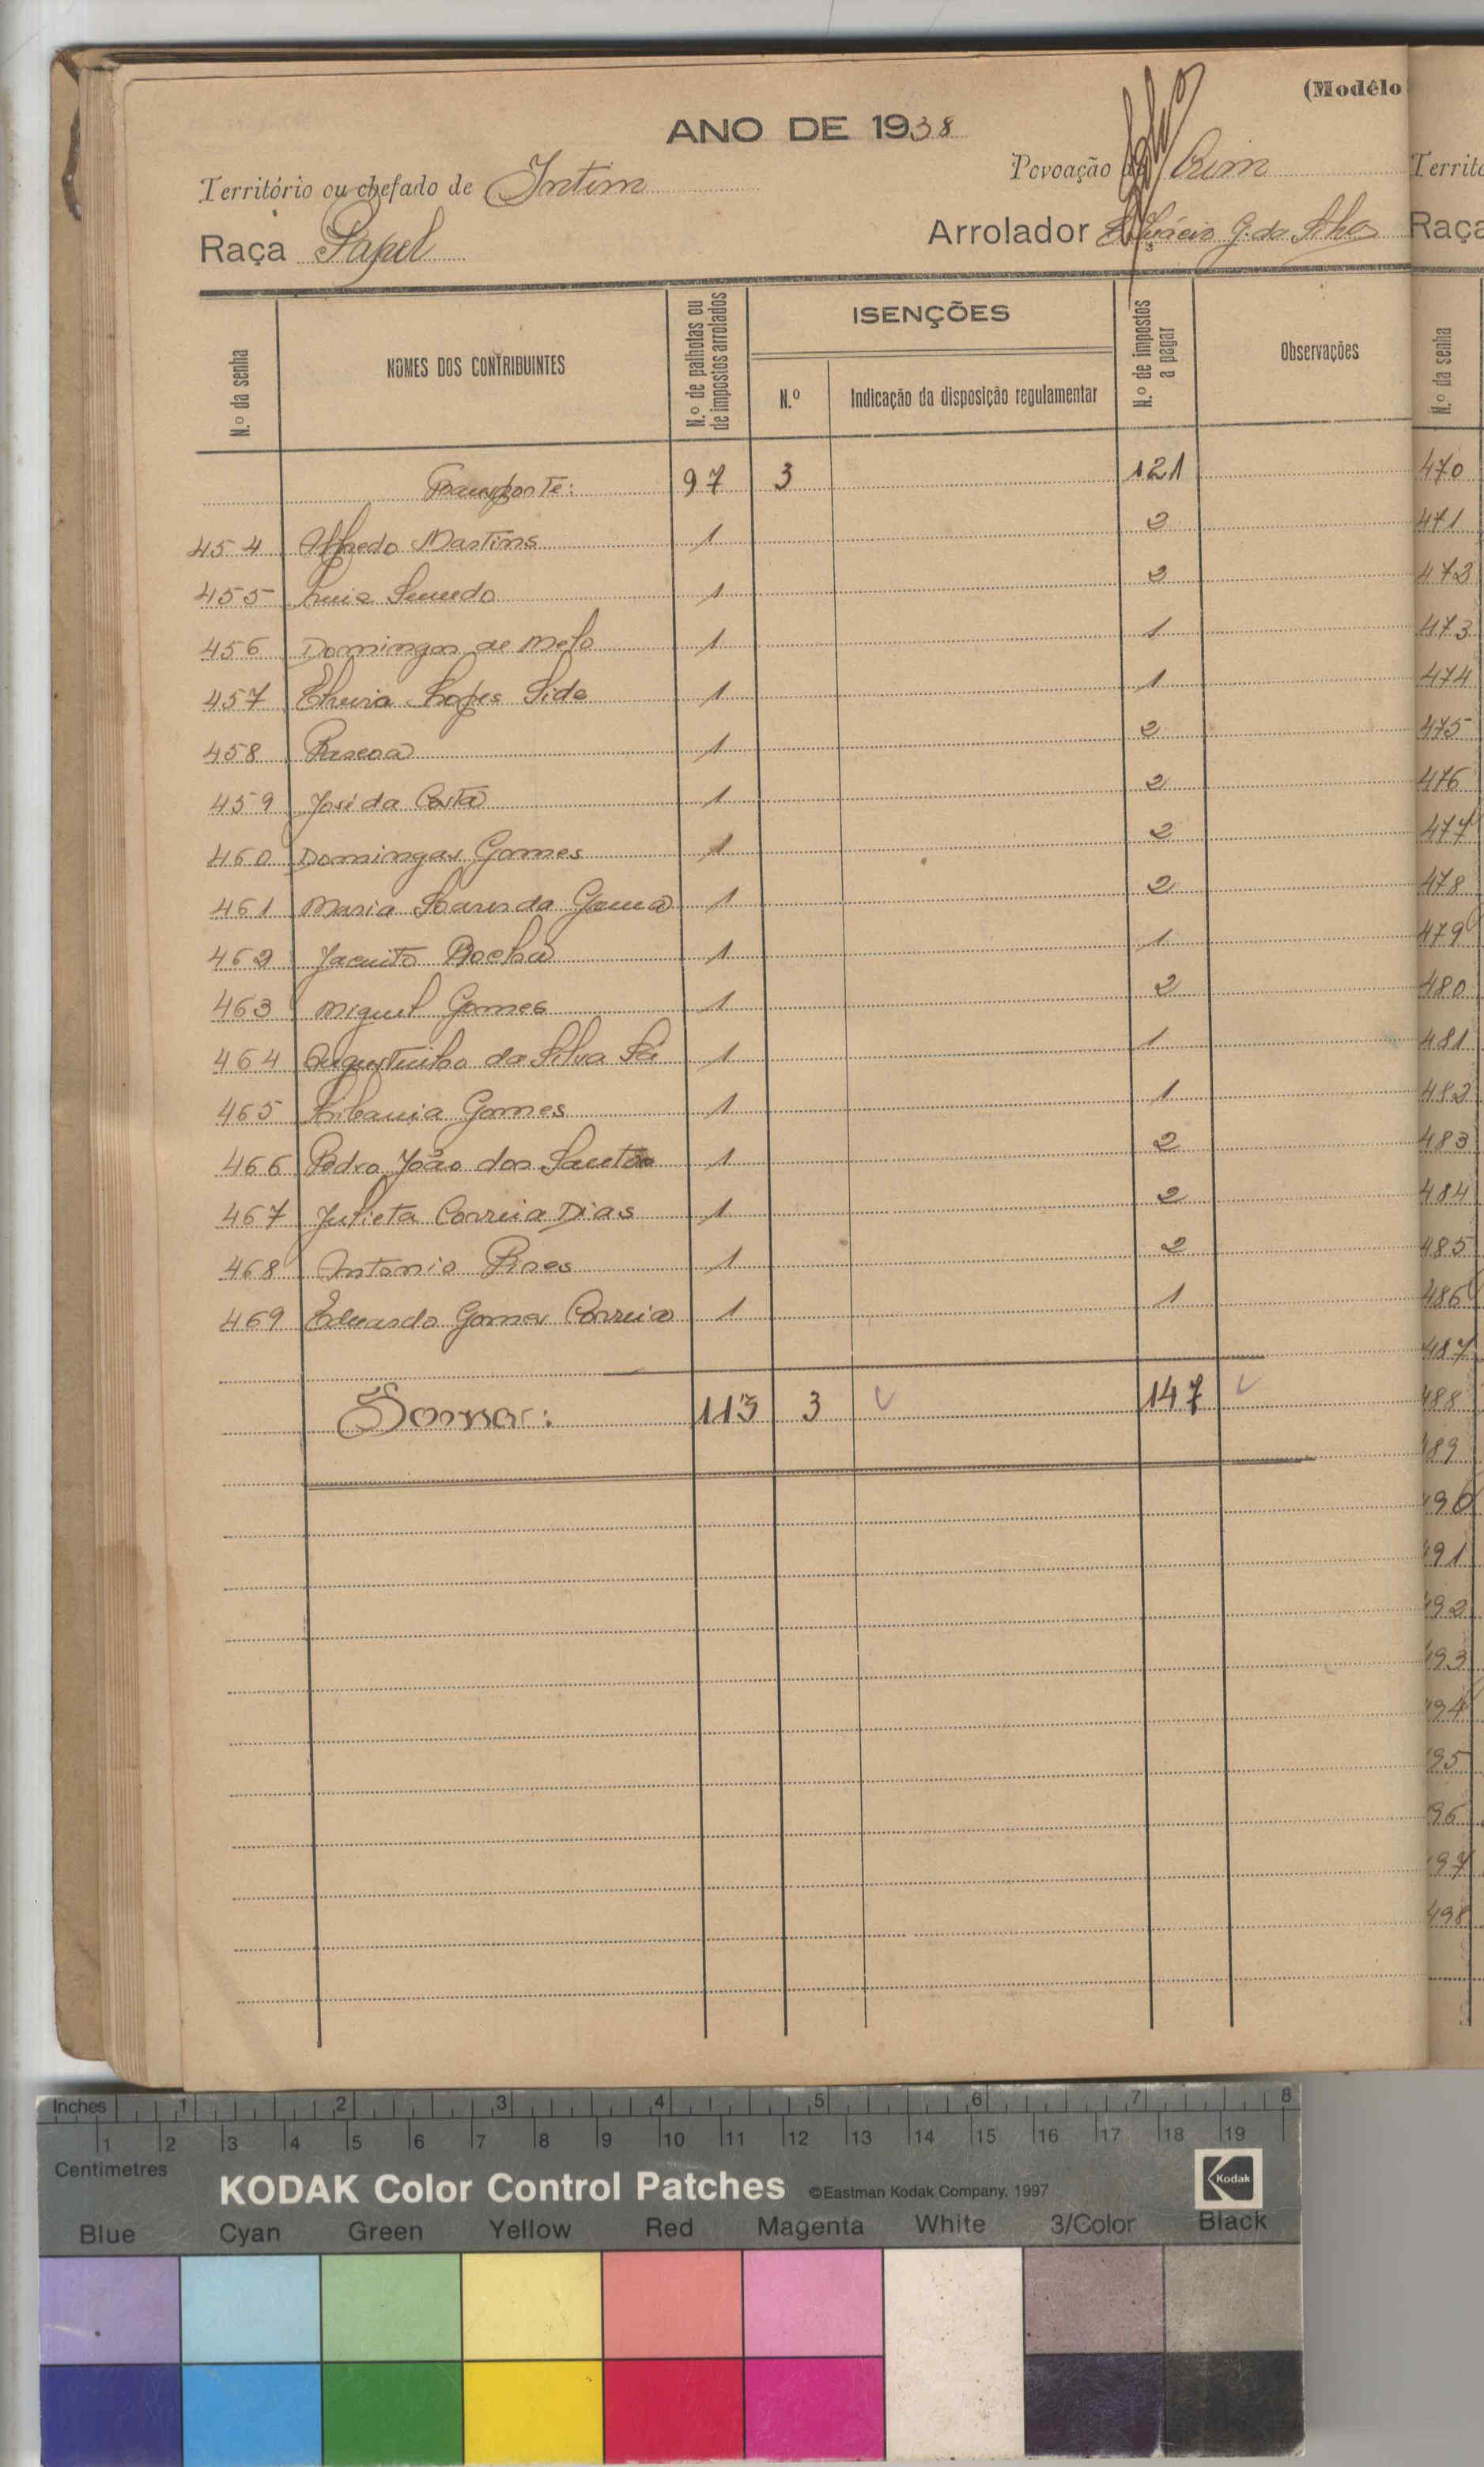 (Modêlo
ANO DE 1938
Território ou chefado de Intim
Povoação de Crim
Raça Papel
Arrolador G. da Silva
N.º da senha
NOMES DOS CONTRIBUINTES
N.º de palhotas ou de impostos arrolados
ISENÇÕES
N.º
Indicação da disposição regulamentar
N.º de impostos a pagar
Observações
Transporte: 97 3 121
454 Alfredo Martins 1 2
455 Luis 1 2
456 Domingos de Melo 1 1
457 Lopes 1 1
458 Pascoa 1 2
459 José da Costa 1 2
460 Domingas Gomes 1 2
461 Maria Soares da Gama 1 2
462 Jacinto Rocha 1 1
463 Miguel Gomes 1 2
464 Augustinho da Silva Sá 1 1
465 Libania Gomes 1 1
466 Pedro João dos Santos 1 2
467 Julieta Correia Dias 1 2
468 Antonio Pires 1 2
469 Eduardo Gomes Correia 1 1
Soma: 113 3 147
Territó
Raça
N.º da senha
470
471
472
473
474
475
476
477
478
479
480
481
482
483
484
485
486
487
488
489
490
491
492
493
494
495
496
497
498
Inches 1 2 3 4 5 6 7 8
1 2 3 4 5 6 7 8 9 10 11 12 13 14 15 16 17 18 19
Centimetres
KODAK Color Control Patches ©Eastman Kodak Company, 1997 Kodak
Blue Cyan Green Yellow Red Magenta White 3/Color Black